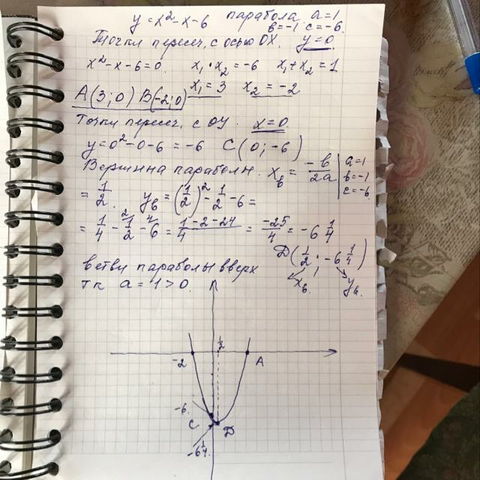 y = x² - x - 6 парабола a = 1
в = -1 c = -6.
Точки пересеч. с осью OX. y = 0
x² - x - 6 = 0. x₁ · x₂ = -6 x₁ + x₂ = 1
x₁ = 3 x₂ = -2
A(3; 0) B(-2; 0)
Точки пересеч. с OY. x = 0
y = 0² - 0 - 6 = -6 C(0; -6)
Вершина параболы. xв = -в/2a | a = 1 в = -1 c = -6
= 1/2. yв = (1/2)² - 1/2 - 6 =
= 1/4 - 1/2 - 6 = (1 - 2 - 24)/4 = -25/4 = -6 1/4
D(1/2; -6 1/4)
xв. yв.
ветви параболы вверх
т к a = 1 > 0.
-2 1/2 A
-6
C D
-6 1/4